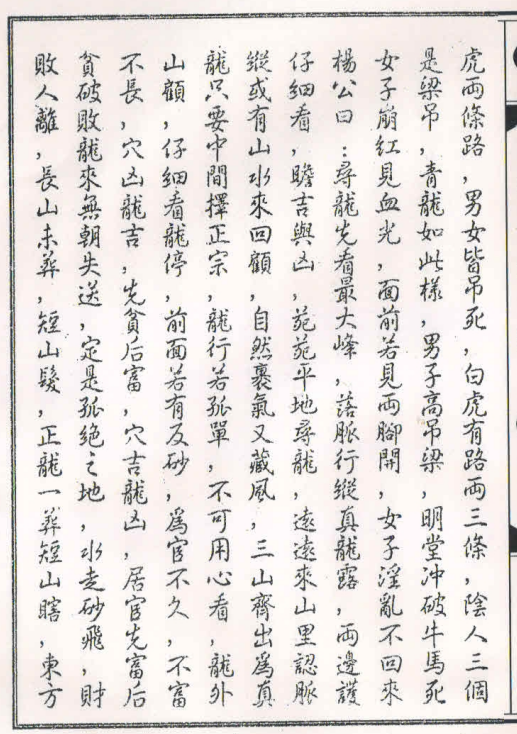 虎両條路，男女皆吊死，白虎有路両三條，陰人三個
是梁吊，青龍如此樣，男子高吊梁，明堂沖破牛馬死
女子崩紅見血光，面前若見両腳開，女子淫亂不回來
楊公曰：尋龍先看最大峰，落脈行縱真龍露，両邊護
仔細看，瞻吉與凶，范范平地尋龍，遠遠來山里認脈
縱或有山水來回顧，自然裹氣又藏風，三山齊出為真
龍只要中間擇正宗，龍行若孤單，不可用心看，龍外
山顧，仔細看龍停，前面若有反砂，為官不久，不富
不長，穴凶龍吉，先貧后富，穴吉龍凶，居官先富后
貧破敗龍來無朝失送，定是孤絕之地，水走砂飛，財
敗人離，長山未葬，短山髮，正龍一葬短山瞎，東方